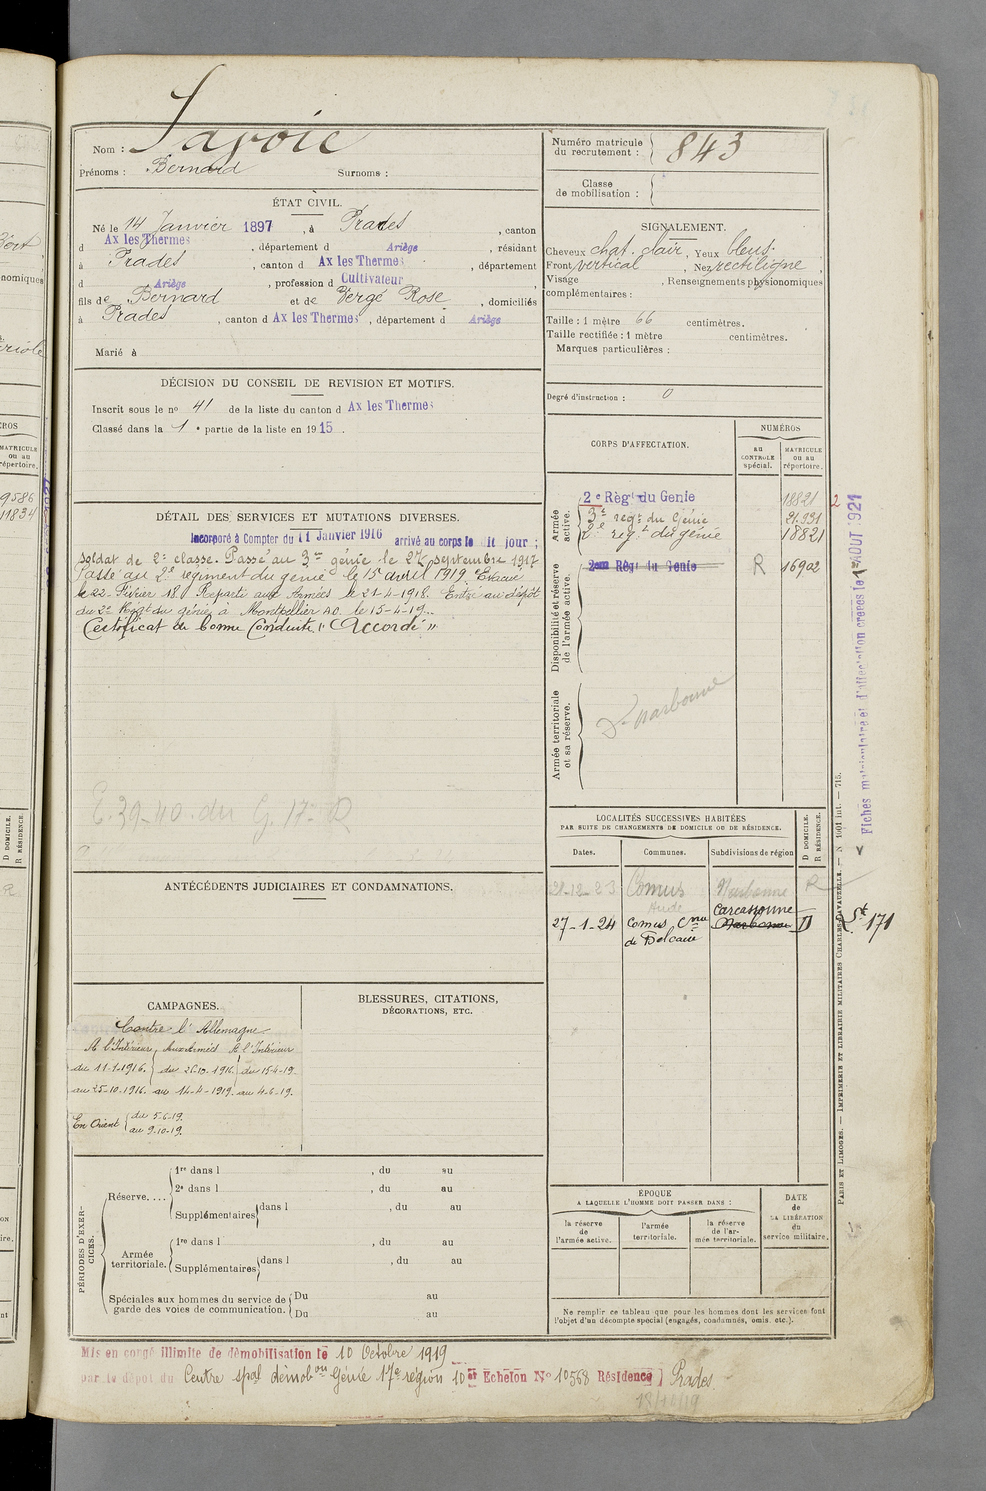 Nom : Savoie
Prénoms : Bernard Surnoms :
ÉTAT CIVIL.
Né le 14 Janvier 1897, à Prades, canton
d Ax les Thermes, département d Ariège, résidant
à Prades, canton d Ax les Thermes, département
d Ariège, profession d Cultivateur,
fils de Bernard et de Vergé Rose, domiciliés
à Prades, canton d Ax les Thermes, département d Ariège
Marié à
DÉCISION DU CONSEIL DE REVISION ET MOTIFS.
Inscrit sous le nº 41 de la liste du canton d Ax les Thermes
Classé dans la 1e partie de la liste en 1915.
DÉTAIL DES SERVICES ET MUTATIONS DIVERSES.
Incorporé à Compter du 11 Janvier 1916 arrivé au corps le dit jour ;
soldat de 2e classe. Passé au 3me génie le 27 septembre 1917
Passé au 2e régiment du génie le 15 avril 1919. Evacué
le 22 Février 18. Reparti aux Armées le 21-4-1918. Entré au dépôt
du 2e Régt du génie à Montpellier le 15-4-19.
Certificat de bonne Conduite "Accordé"
E. 39-40. du G. 17e R
ANTÉCÉDENTS JUDICIAIRES ET CONDAMNATIONS.
CAMPAGNES.
Contre l'Allemagne
A l'Intérieur Aux Armées A l'Intérieur
du 11-1-1916. du 26.10.1916. du 15-4-19.
au 25-10-1916. au 14-4-1919. au 4-6-19.
En Orient du 5-6-19.
au 9.10-19.
BLESSURES, CITATIONS,
DÉCORATIONS, ETC.
PÉRIODES D'EXERCICES.
Réserve....
1re dans l , du au
2e dans l , du au
Supplémentaires dans l , du au
Armée territoriale.
1re dans l , du au
Supplémentaires dans l , du au
Spéciales aux hommes du service de Du au
garde des voies de communication. Du au
Numéro matricule
du recrutement : 843
Classe
de mobilisation :
SIGNALEMENT.
Cheveux chat. clair, Yeux bleus.
Front vertical, Nez rectiligne,
Visage , Renseignements physionomiques
complémentaires :
Taille : 1 mètre 66 centimètres.
Taille rectifiée : 1 mètre centimètres.
Marques particulières :
Degré d'instruction : 0
CORPS D'AFFECTATION.
NUMÉROS
au CONTROLE spécial.
MATRICULE ou au répertoire.
Armée active.
2e Régt du Genie 18821
3e regt du Génie 21.931
2e regt du génie 18821
Disponibilité et réserve de l'armée active.
2eme Régt du Genie R 16902
Armée territoriale et sa réserve.
Narbonne
LOCALITÉS SUCCESSIVES HABITÉES
PAR SUITE DE CHANGEMENTS DE DOMICILE OU DE RÉSIDENCE.
D DOMICILE.
R RÉSIDENCE.
Dates. Communes. Subdivisions de région
21-12-23 Comus Narbonne R
Aude
Carcassonne
27-1-24 Comus Cne Narbonne D
de Belcaire
171
ÉPOQUE
A LAQUELLE L'HOMME DOIT PASSER DANS :
la réserve de l'armée active.
l'armée territoriale.
la réserve de l'armée territoriale.
DATE de LA LIBÉRATION du service militaire.
Ne remplir ce tableau que pour les hommes dont les services font
l'objet d'un décompte spécial (engagés, condamnés, omis, etc.).
Fiches matriculaire et d'affectation créées le 1er AOUT 1921
PARIS ET LIMOGES. — IMPRIMERIE ET LIBRAIRIE MILITAIRES CHARLES-LAVAUZELLE. — N 1001 int. — 715.
Mis en congé illimité de démobilisation le 10 Octobre 1919
par le dépôt du Centre spal démobon Génie 17e région 10e Echelon Nº 10568 Résidence Prades